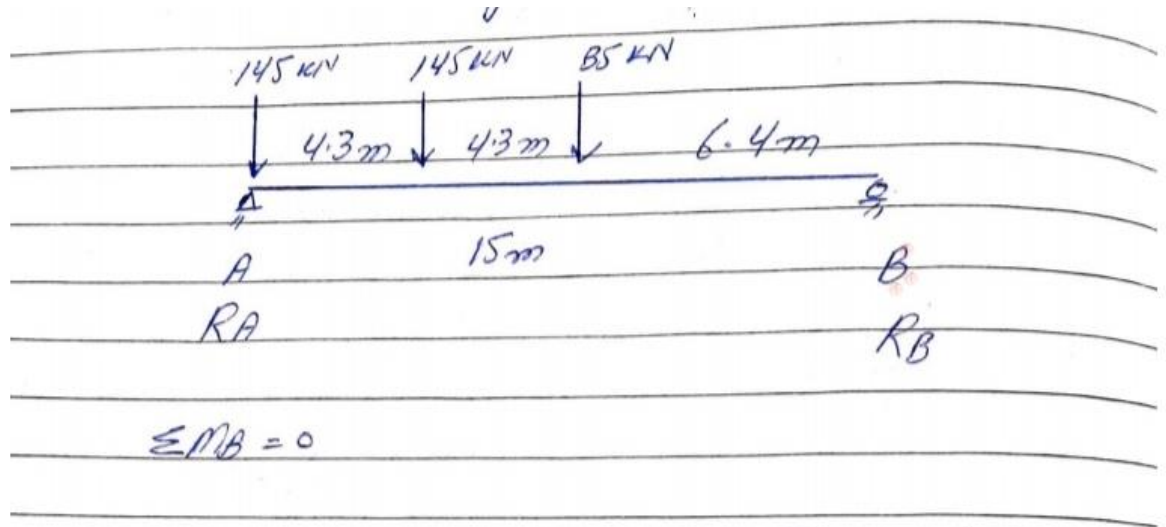 145 KN 145 KN 85 KN
4.3m 4.3m 6.4m
15m
A B
RA RB
ΣMB = 0